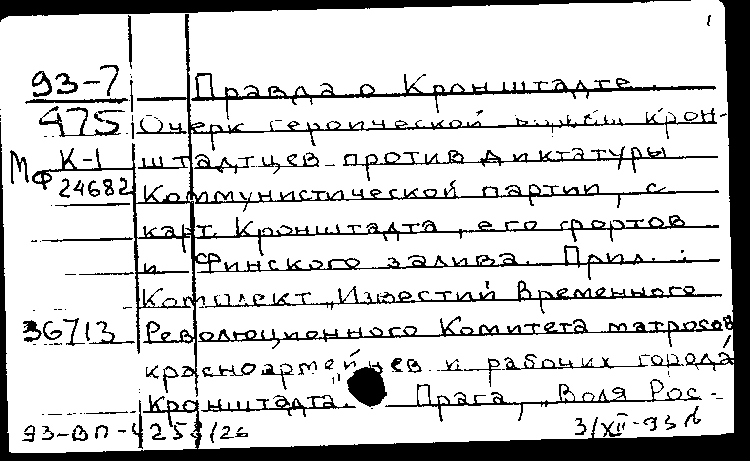 1
93-7
Правда о Кронштадте.
475
Очерк героической борьбы крон-
Мф К-1
24682
штадтцев против диктатуры
Коммунистической партии, с
карт. Кронштадта, его фортов
и Финского залива. Прил.:
Комплект „Известий Временного
36713
Революционного Комитета матросов
красноармейцев и рабочих города
Кронштадта". Прага, „Воля Рос-
93-ВП-4254/26
3/XII-93